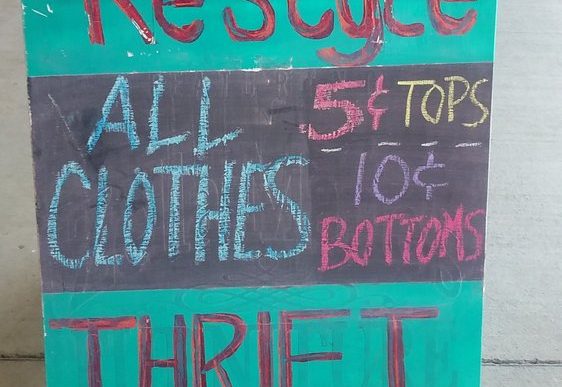 ReStyle
ALL
CLOTHES
.5¢ TOPS
10¢
BOTTOMS
THRIFT